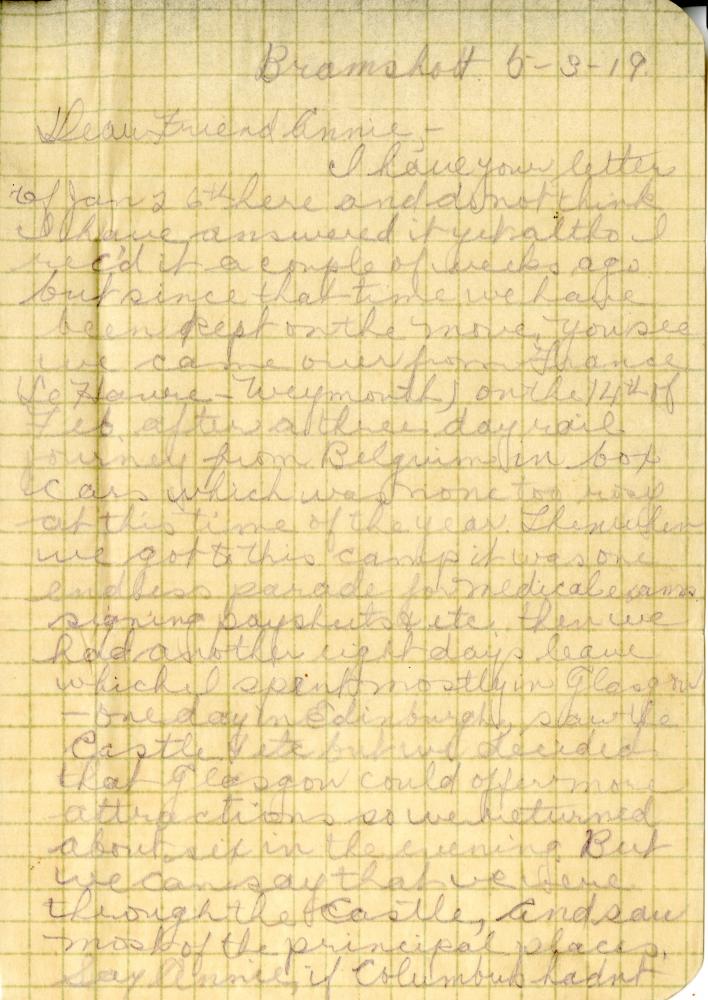 Bramshott 5-3-19.
Dear Friend Annie,-
I have your letter
of Jan 26th here and do not think
I have answered it yet altho I
rec'd it a couple of weeks ago
but since that time we have
been kept on the move, you see
we came over from France
(Le Havre - Weymouth) on the 14th of
Feb. after a three day rail
journey from Belguim in box
cars which was none too rosy
at this time of the year. Then when
we got to this camp it was one
endless parade for medical exams
signing paysheets & etc, then we
had another eight days leave
which I spent mostly in Glasgow
- one day in Edinburgh, saw the
Castle & etc but we decided
that Glasgow could offer more
attractions so we returned
about six in the evening. But
we can say that we were
through the Castle, and saw
most of the principal places.
Say Annie, if Columbus hadnt